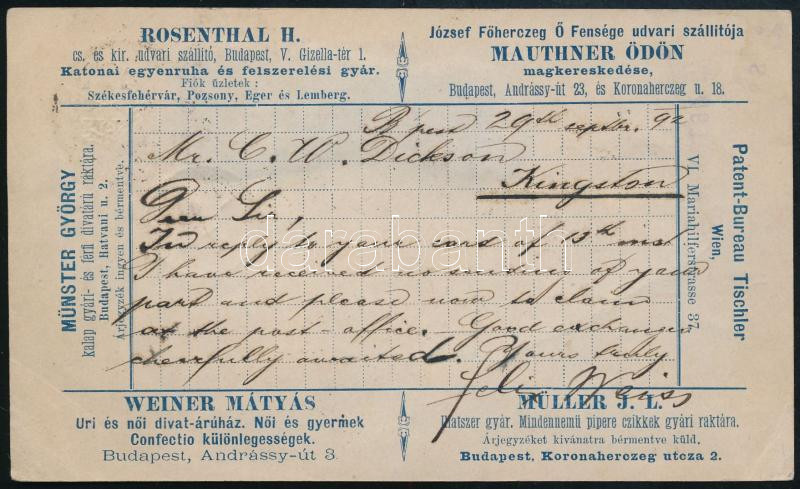 ROSENTHAL H.
cs. és kir. udvari szállitó, Budapest, V. Gizella-tér 1.
Katonai egyenruha és felszerelési gyár.
Fiók üzletek :
Székesfehérvár, Pozsony, Eger és Lemberg.
József Főherczeg Ő Fensége udvari szállitója
MAUTHNER ÖDÖN
magkereskedése,
Budapest, Andrássy-út 23, és Koronaherczeg u. 18.
MÜNSTER GYÖRGY
kalap gyári- és férfi divatárú raktára.
Budapest, Hatvani u. 2.
Árjegyzék ingyen és bérmentve.
Bpest 29th septbr. 92
Mr. C. W. Dickson
Kingston
Dear Sir,
In reply to your card of 13th inst
I have received no sending of your
part and please now to claim
at the post-office. Good exchanges
cheerfully awaited. Yours truly
Felix Weiss
Patent-Bureau Tischler
Wien,
VI. Mariahilferstrasse 37.
darabanth
WEINER MÁTYÁS
Uri és női divat-árúház. Női és gyermek
Confectio különlegességek.
Budapest, Andrássy-út 3.
MÜLLER J. L.
Illatszer gyár. Mindennemü pipere czikkek gyári raktára.
Árjegyzéket kivánatra bérmentve küld.
Budapest, Koronaherczeg utcza 2.